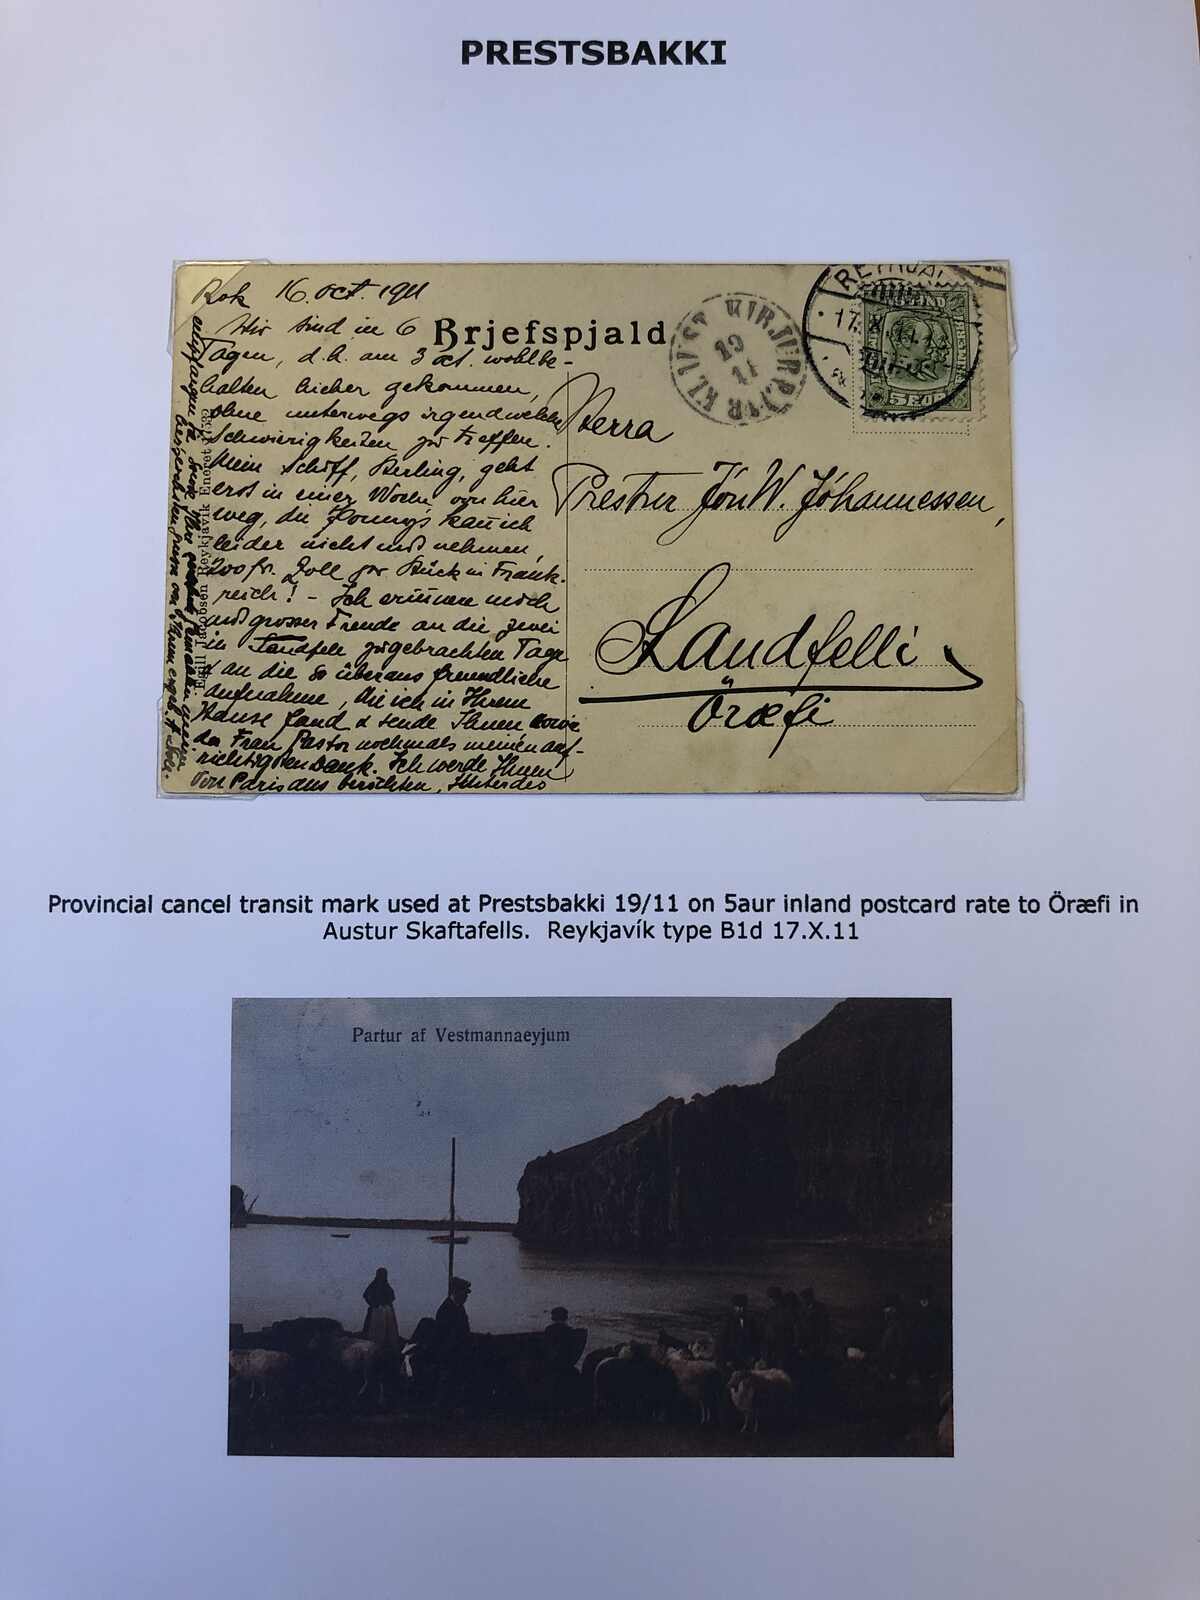 PRESTSBAKKI
Rvk 16. oct. 1911
Wir sind in 6
Tagen, d.h. am 3 oct. wohlbe-
halten hieher gekommen,
ohne unterwegs irgendwelche
Schwierigkeiten zu treffen.
Mein Schiff, Sterling, geht
erst in einer Woche von hier
weg, die Ponnys kann ich
leider nicht mitnehmen,
200 fr. Zoll pr Stück in Frank-
reich! - Ich erinnere mich
mit grosser Freude an die zwei
in Sandfell zugebrachten Tage
& an die so überaus freundliche
Aufnahme, die ich in Ihrem
Hause fand & sende Ihnen sowie
der Frau Pastor nochmals meinen auf-
richtigsten Dank. Ich werde Ihnen
von Paris aus berichten,
Egill Jacobsen Reykjavík Eneret
Brjefspjald
KIRJUBÆJARKLAUST
19
11
REYKJAV
17.X.11
5 EUR
Herra
Prestur Jón W. Jóhannessen,
Sandfelli
Öræfi
Provincial cancel transit mark used at Prestsbakki 19/11 on 5aur inland postcard rate to Öræfi in
Austur Skaftafells. Reykjavík type B1d 17.X.11
Partur af Vestmannaeyjum